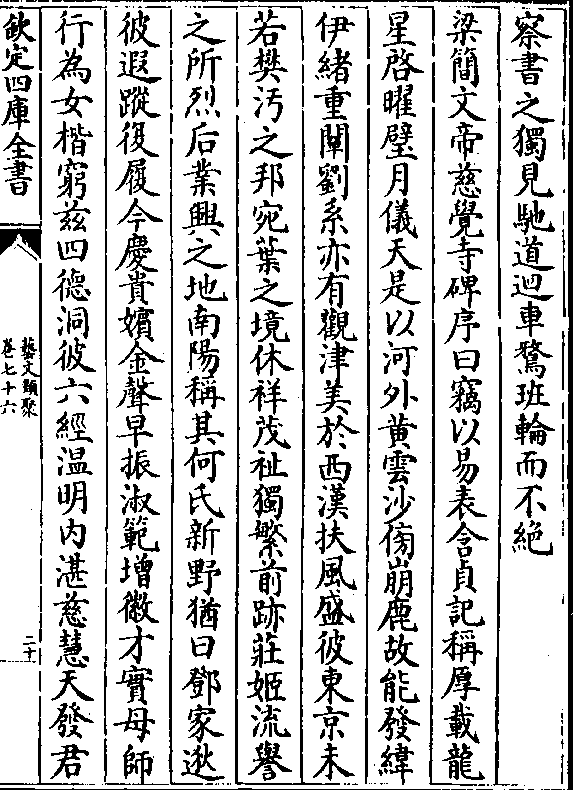 察書之獨見馳道迴車騖班輪而不絶
梁簡文帝慈覺寺碑序曰竊以易表含貞記稱厚載龍
星啓曜璧月儀天是以河外黄雲沙傍崩鹿故能發緯
伊緒重闡劉系亦有觀津美於西漢扶風盛彼東京未
若樊沔之邦宛葉之境休祥茂祉獨繁前跡莊姬流譽
之所烈后業興之地南陽稱其何氏新野猶曰鄧家逖
彼遐蹤復履今慶貴嬪金聲早振淑範增徽才實母師
行為女楷窮兹四德洞彼六經温明内湛慈慧天發君
欽定四庫全書
藝文類聚
卷七十六
二十